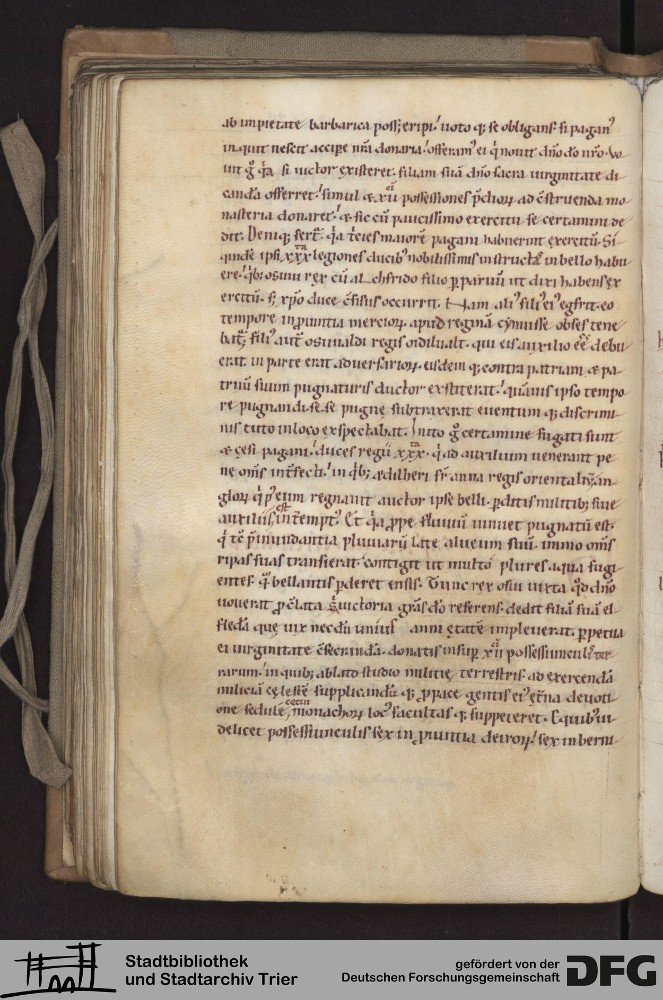 ab impietate barbarica poss; eripi. uoto q; se obligans. si pagan᾽
inquit nescit accipe nr̄a donaria. offeram᾽ ei q̇ nouit dn̄o do nr̄o. Vo
uit g̊ q̇a si uictor existeret. filiam suā dn̄o sacra uirginitate di
candā offerret. simul & xii possessiones p̄dioꝝ ad c̄struenda mo
nasteria donaret. & sic cū paucissimo exercitu se certamini de
dit. Deniq; fert᷒. q̇a t̓cies maiorē pagani habuerint exercitū. Si
quidē ipsi xxx legiones ducib᾽ nobilissimis instructas in bello habu
ere. q̇b; osuiu rex cū alchfrido filio ꝑparuū ut dixi habens ex
ercitū. s; xp̄o duce c̄fisus occurrit. Nam ali᾽ fili᾽ ei᾽ egfrit. eo
tempore in ꝓuintia mercioꝝ. apud reginā cynuisse obses tene
bat᷒; fili᾽ aut̄ osuualdi regis oidiluald. qui eis auxilio eē debu
erat. in parte erat aduersarioꝝ. eisdem q; contra patriam & pa
truū suum pugnaturis ductor extiterat. quāuis ipso tempo
re pugnandi sese pugne subtraxerat euentum q; discrimi
nis tuto in loco exspectabat. Inito g̊ certamine fugati sunt
& cęsi pagani. duces regii xxx. q̇ ad auxilium uenerant pe
ne om̄s int̓fecti. in q̇b; ædilheri fr̄ anna regis orientaliū an
gloꝝ q̇ p᾽ eum regnauit auctor ipse belli. ꝑditis militib; siue
auxiliis est int̓rempt᾽. Et q̇a ꝓpe fluuiū uinuet pugnatū est.
q̇ tē p̄ inundantia pluuiarū late alueum suū. immo om̄s
ripas suas transierat. contigit ut multo plures aqua fugi
entes. q̄ bellantis ꝑderet ensis. Tunc rex osiu iuxta qd̓ dn̄o
uouerat ꝓ c̄lata s᷒ uictoria gr̄as do referens. dedit filiā suā el
fledā quę uix necdū unius anni ętatē impleuerat. ꝑpetua
ei uirginitate c̄secrandā. donatis insup xii possessiunculis ter
rarum. in quib; ablato studio militię terrestris. ad exercendā
miliciā cęlestē supplicandū q; ꝓ pace gentis ei᾽ et̓na deuoti
one sedulę, monachoꝝ loc᾽ facultas q; suppeteret. E quib᾽ ui
delicet possessiunculis sex in ꝓuintia deiroꝝ. sex in berni
Stadtbibliothek
und Stadtarchiv Trier
gefördert von der
Deutschen Forschungsgemeinschaft
DFG